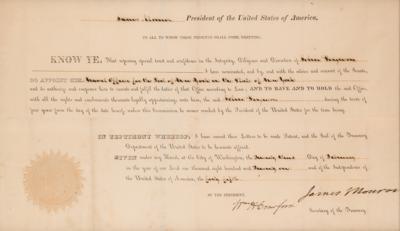 James Monroe President of the United States of America,
TO ALL TO WHOM THESE PRESENTS SHALL COME, GREETING:
KNOW YE, That reposing special trust and confidence in the Integrity, Diligence and Discretion of
I have nominated, and by and with the advice and consent of the Senate,
DO APPOINT HIM, Naval Officer for the Port of New York in the State of New York
and do authorize and empower him to execute and fulfil the duties of that Office according to Law; AND TO HAVE AND TO HOLD the said Office,
with all the rights and emoluments thereunto legally appertaining unto him, the said during the term of
four years from the day of the date hereof, unless this Commission be sooner revoked by the President of the United States for the time being.
IN TESTIMONY WHEREOF, I have caused these Letters to be made Patent, and the Seal of the Treasury
Department of the United States to be hereunto affixed.
GIVEN under my Hand, at the City of Washington, the Day of
in the year of our Lord one thousand eight hundred and twenty one and of the Independence of
the United States of America, the forty fifth.
James Monroe
BY THE PRESIDENT,
Wm H Crawford
Secretary of the Treasury